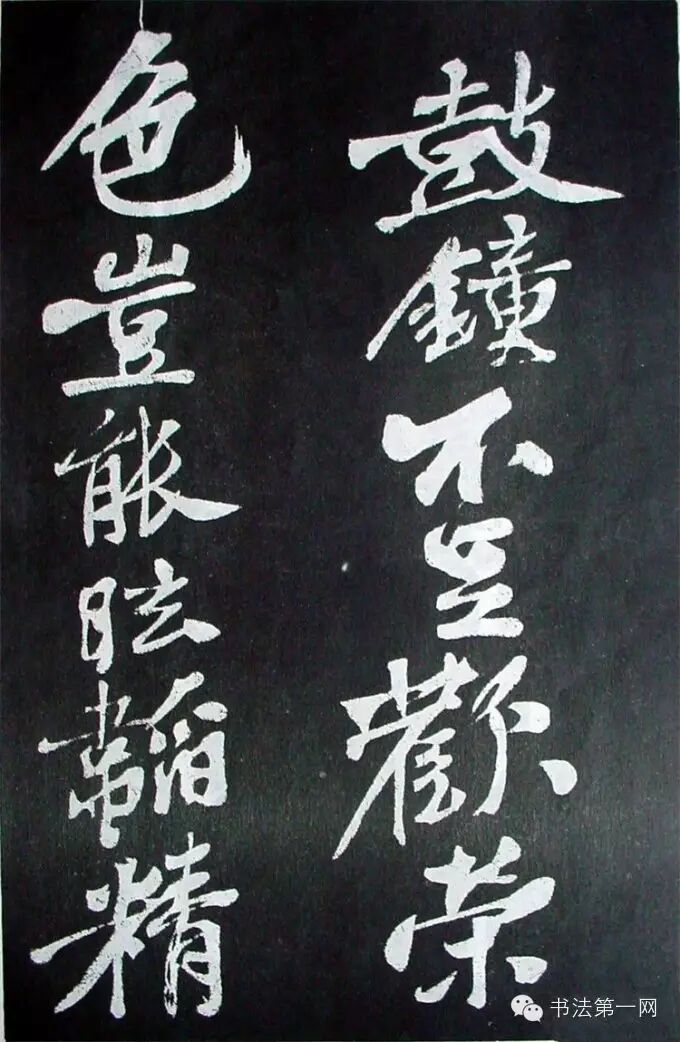 鼓鐘不足歡荣
色豈能眩韜精
书法第一网